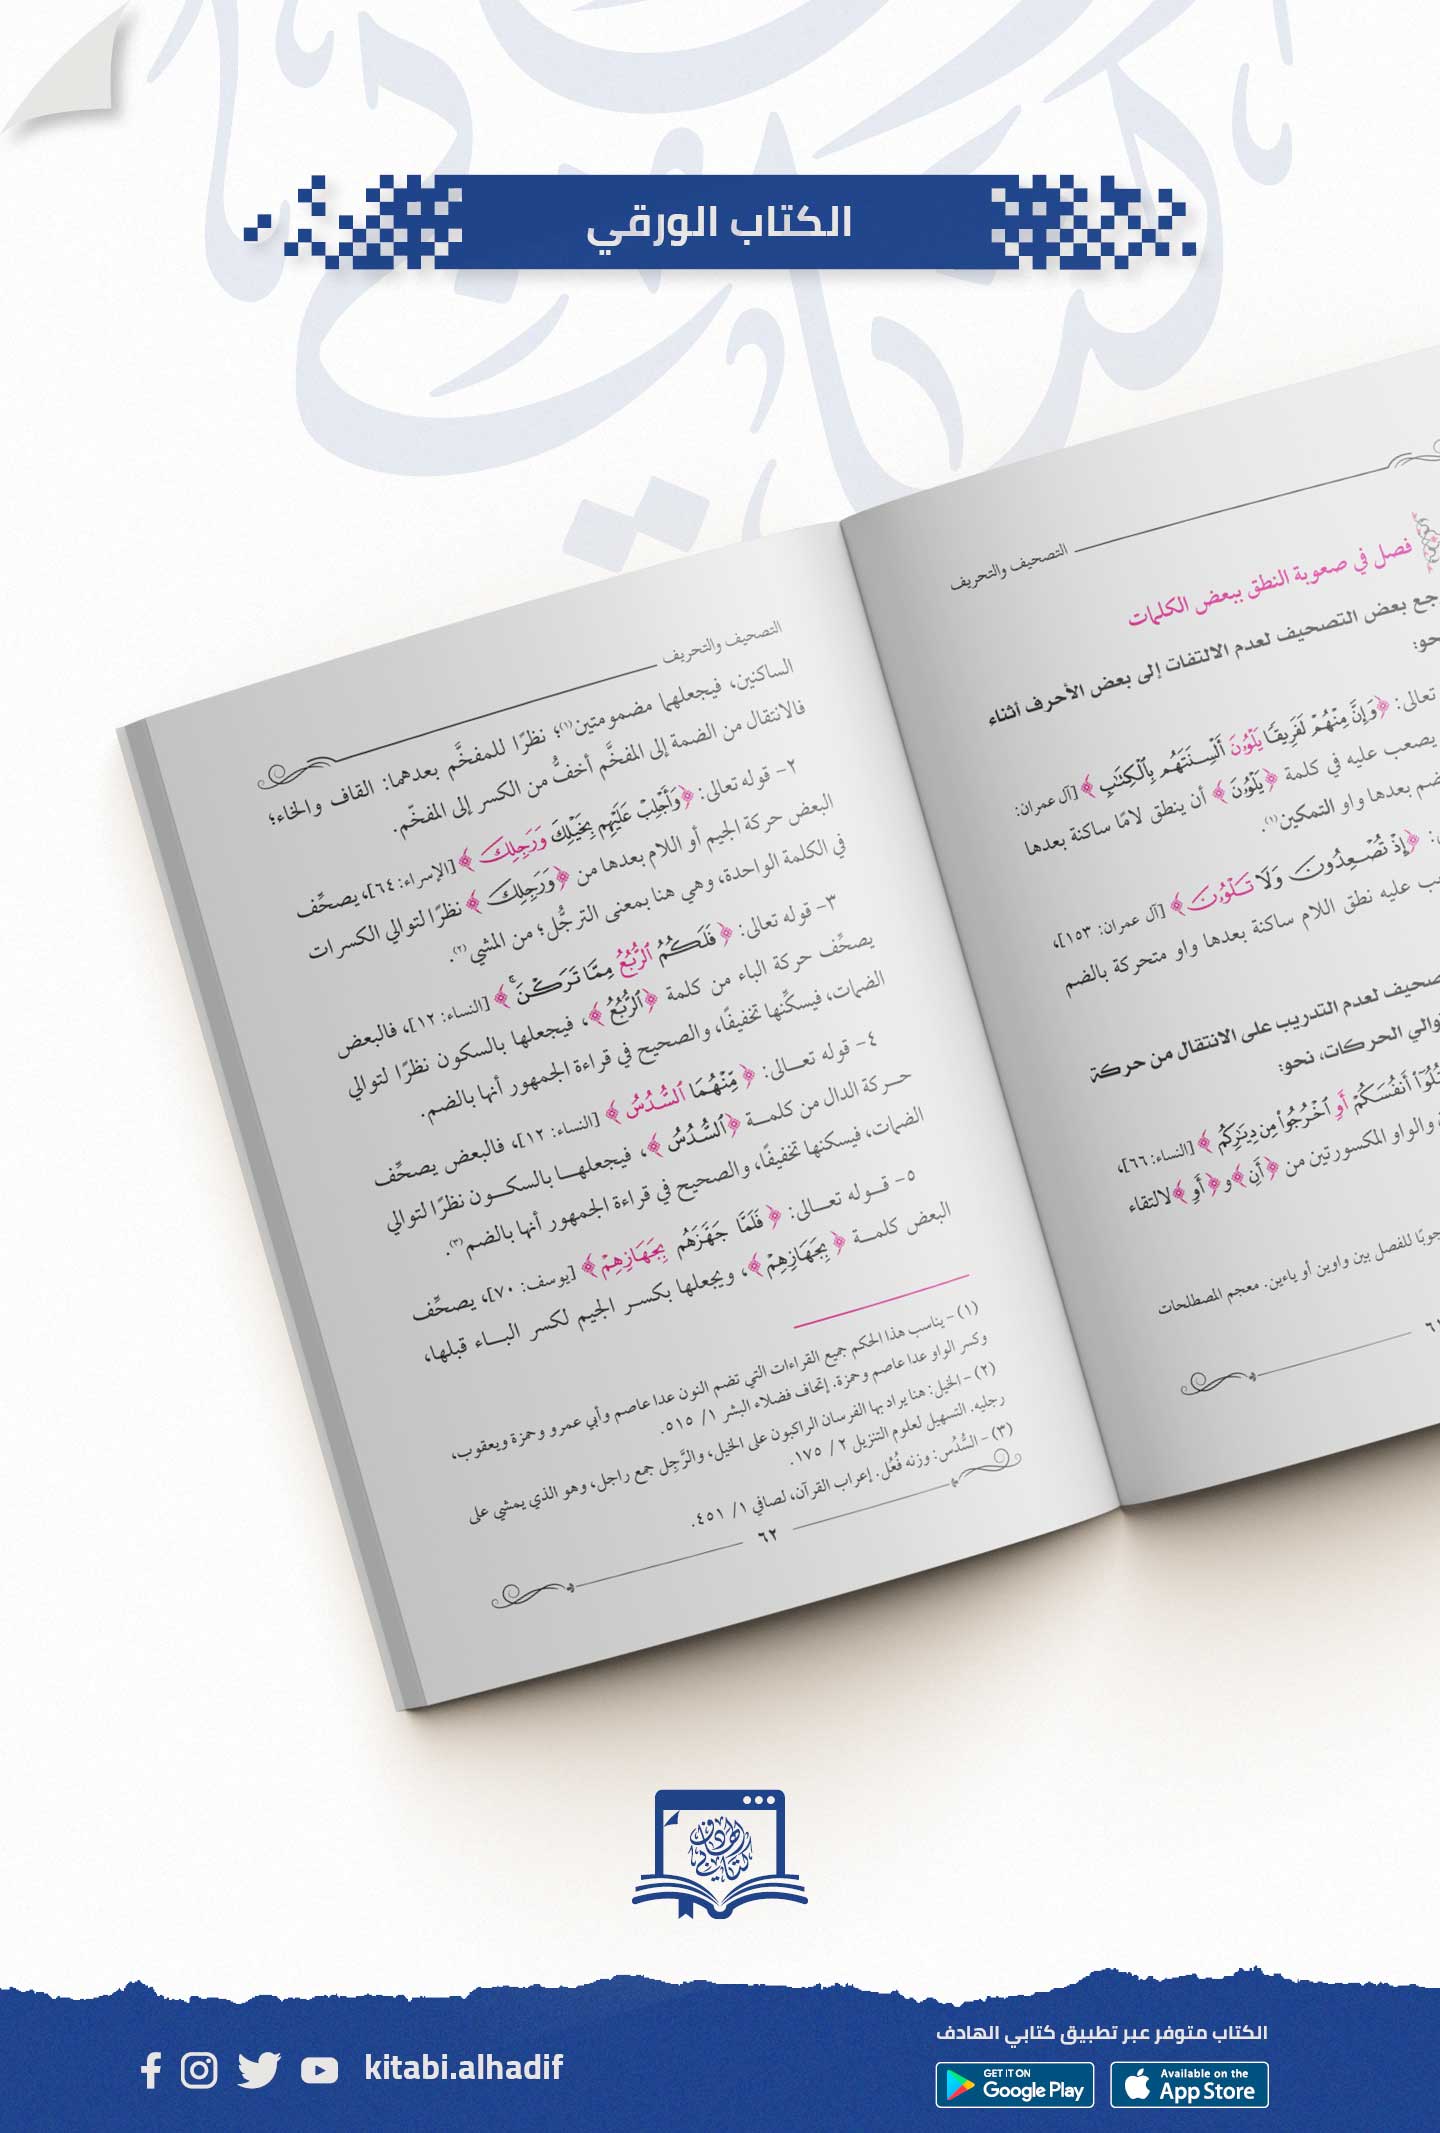 الكتاب الورقي
التصحيف والتحريف
فصل في صعوبة النطق ببعض الكلمات
جع بعض التصحيف لعدم الالتفات إلى بعض الأحرف أثناء
حو:
تعالى: ﴿وَإِنَّ مِنْهُمْ لَفَرِيقًا يَلْوُۥنَ أَلْسِنَتَهُم بِٱلْكِتَٰبِ﴾ [آل عمران:
يصعب عليه في كلمة ﴿يَلْوُۥنَ﴾ أن ينطق لامًا ساكنة بعدها
ضم بعدها واو التمكين(١).
: ﴿إِذْ تُصْعِدُونَ وَلَا تَلْوُۥنَ﴾ [آل عمران: ١٥٣]،
ب عليه نطق اللام ساكنة بعدها واو متحركة بالضم
صحيف لعدم التدريب على الانتقال من حركة
والي الحركات، نحو:
تُلُوٓا۟ أَنفُسَكُمْ أَوِ ٱخْرُجُوا۟ مِن دِيَٰرِكُم﴾ [النساء: ٦٦]،
والواو المكسورتين من ﴿أَنِ﴾ و﴿أَوِ﴾ لالتقاء
جوبًا للفصل بين واوين أو ياءين. معجم المصطلحات
٦١
التصحيف والتحريف
الساكنين، فيجعلهما مضمومتين(١)؛ نظرًا للمفخَّم بعدهما: القاف والخاء؛
فالانتقال من الضمة إلى المفخَّم أخفُّ من الكسر إلى المفخّم.
٢- قوله تعالى: ﴿وَأَجْلِبْ عَلَيْهِم بِخَيْلِكَ وَرَجِلِكَ﴾ [الإسراء: ٦٤]، يصحِّف
البعض حركة الجيم أو اللام بعدها من ﴿وَرَجِلِكَ﴾ نظرًا لتوالي الكسرات
في الكلمة الواحدة، وهي هنا بمعنى الترجُّل؛ من المشي(٢).
٣- قوله تعالى: ﴿فَلَكُمُ ٱلرُّبُعُ مِمَّا تَرَكْنَ ۚ﴾ [النساء: ١٢]، فالبعض
يصحِّف حركة الباء من كلمة ﴿ٱلرُّبُعُ﴾، فيجعلها بالسكون نظرًا لتوالي
الضمات، فيسكِّنها تخفيفًا، والصحيح في قراءة الجمهور أنها بالضم.
٤- قوله تعالى: ﴿مِّنْهُمَا ٱلسُّدُسُ﴾ [النساء: ١٢]، فالبعض يصحِّف
حركة الدال من كلمة ﴿ٱلسُّدُسُ﴾، فيجعلها بالسكون نظرًا لتوالي
الضمات، فيسكنها تخفيفًا، والصحيح في قراءة الجمهور أنها بالضم(٣).
٥- قوله تعالى: ﴿فَلَمَّا جَهَّزَهُم بِجَهَازِهِمْ﴾ [يوسف: ٧٠]، يصحِّف
البعض كلمة ﴿بِجَهَازِهِمْ﴾، ويجعلها بكسر الجيم لكسر الباء قبلها،
(١) - يناسب هذا الحكم جميع القراءات التي تضم النون عدا عاصم وأبي عمرو وحمزة ويعقوب،
وكسر الواو عدا عاصم وحمزة. إتحاف فضلاء البشر ١/ ٥١٥.
(٢) - الخيل: هنا يراد بها الفرسان الراكبون على الخيل، والرَّجِل جمع راجل، وهو الذي يمشي على
رجليه. التسهيل لعلوم التنزيل ٢ / ١٧٥.
(٣) - السُّدُس: وزنه فُعُل. إعراب القرآن، لصافي ١/ ٤٥١.
٦٢
كتابي الهادف
الكتاب متوفر عبر تطبيق كتابي الهادف
kitabi.alhadif
GET IT ON
Google Play
Available on the
App Store